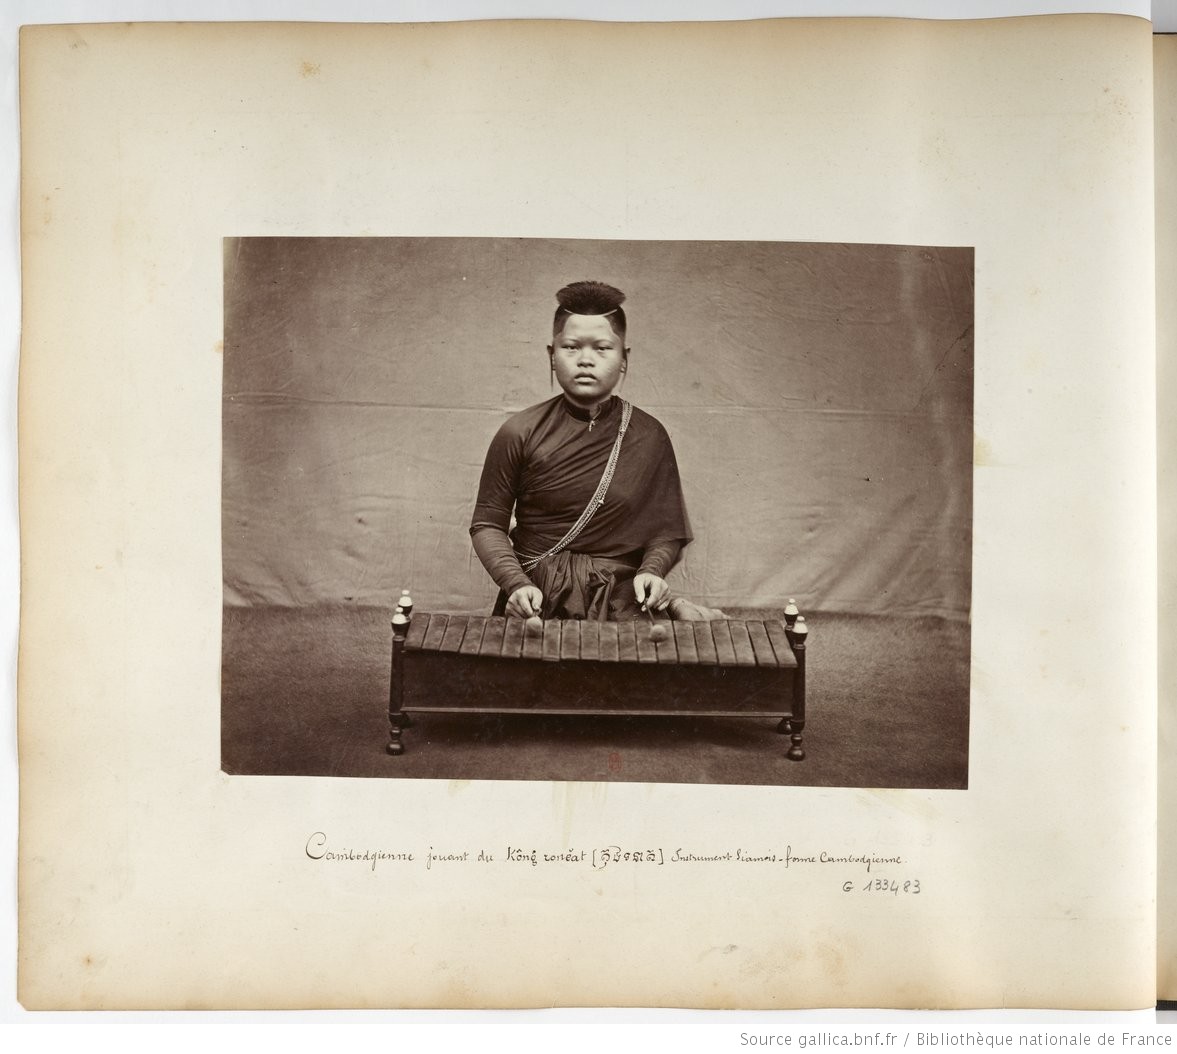 Cambodgienne jouant du Kông roneat [] Instrument Siamois - forme Cambodgienne.
G 133483
Source gallica.bnf.fr / Bibliothèque nationale de France